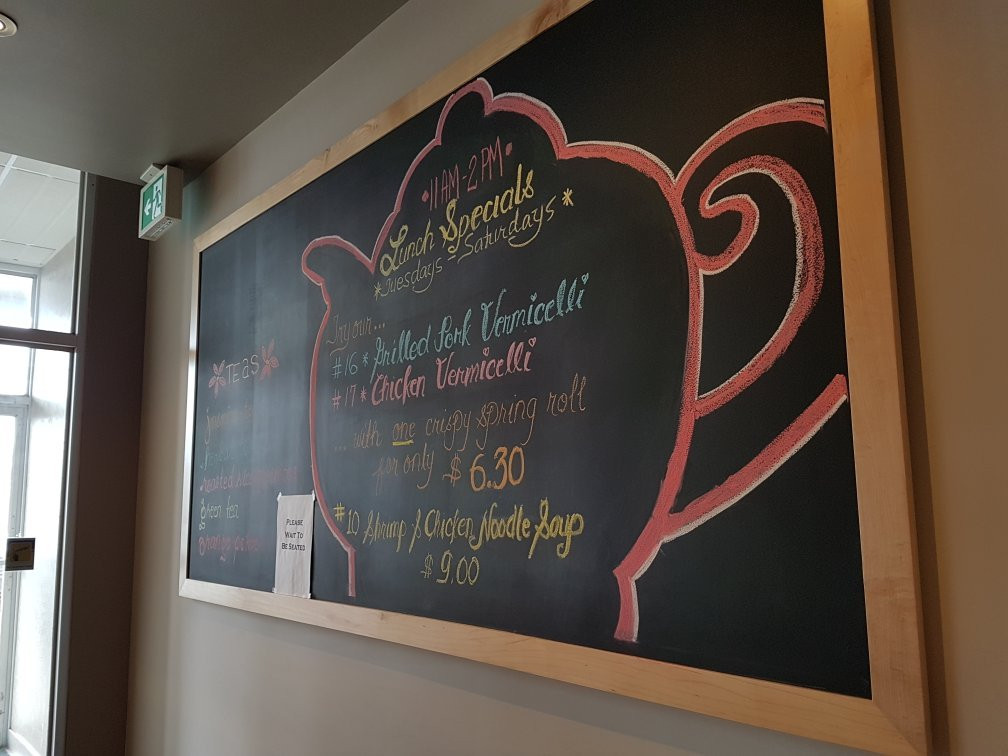 •11AM-2PM•
Lunch Specials
*Tuesdays - Saturdays*
Try our...
#16 * Grilled Pork Vermicelli
#17 * Chicken Vermicelli
... with one crispy spring roll
for only $6.30
#10 Shrimp & Chicken Noodle Soup
$9.00
Teas
green tea
PLEASE
WAIT TO
BE SEATED